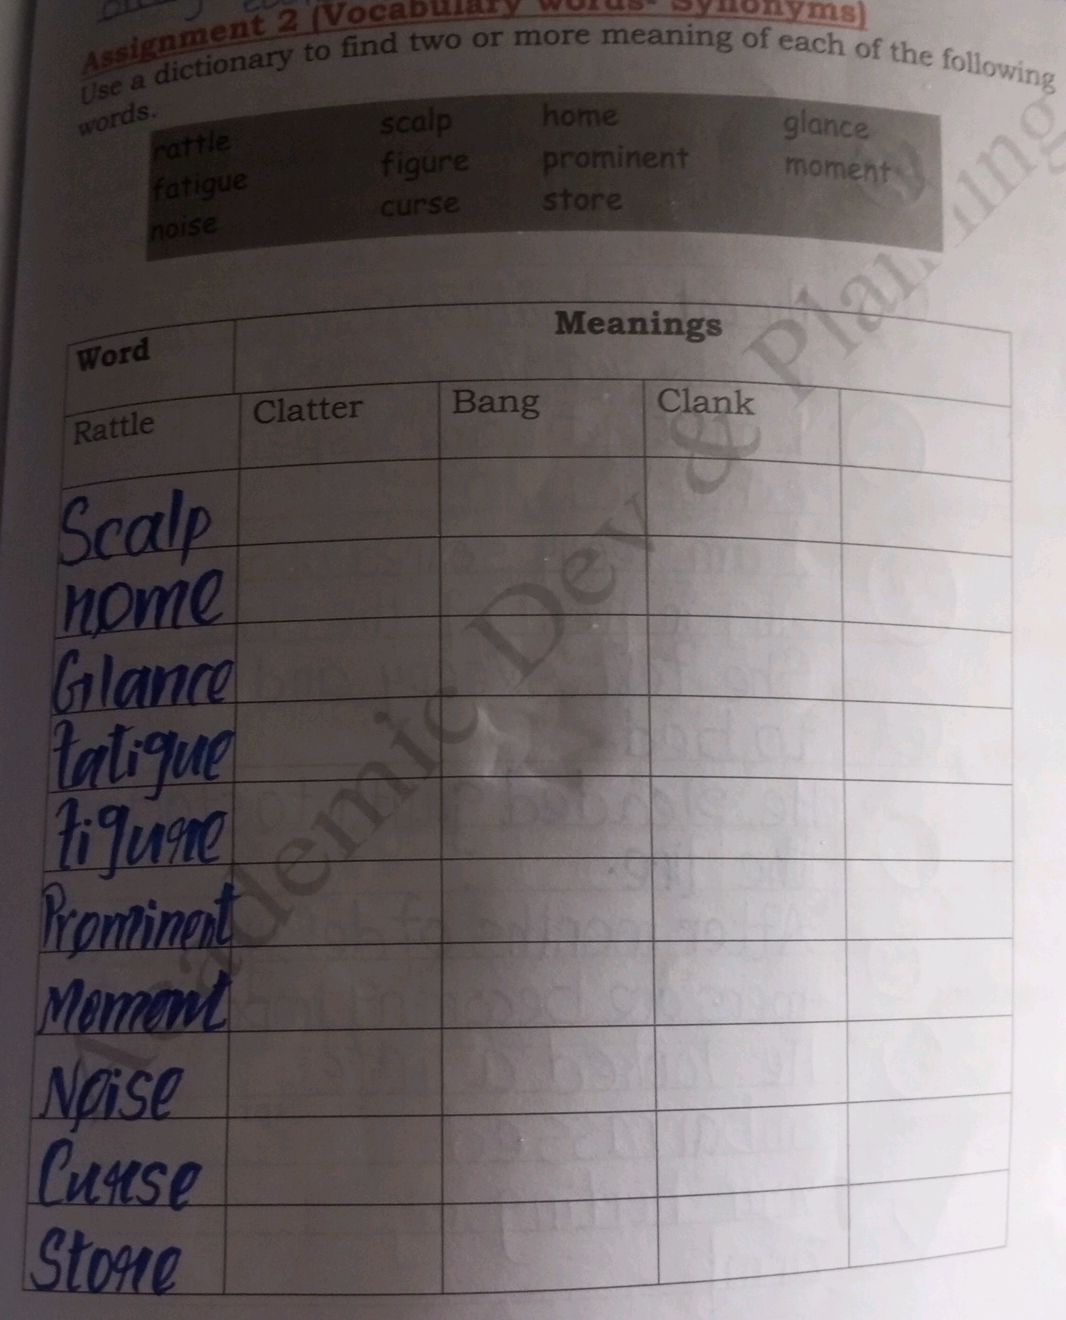 Assignment 2 (Vocabulary words- Synonyms)
Use a dictionary to find two or more meaning of each of the following
words.
rattle scalp home glance
fatigue figure prominent moment
noise curse store
Word Meanings
Rattle Clatter Bang Clank
Scalp
home
Glance
fatigue
figure
Prominent
Moment
Noise
Curse
Store
Academic Dev & Planning